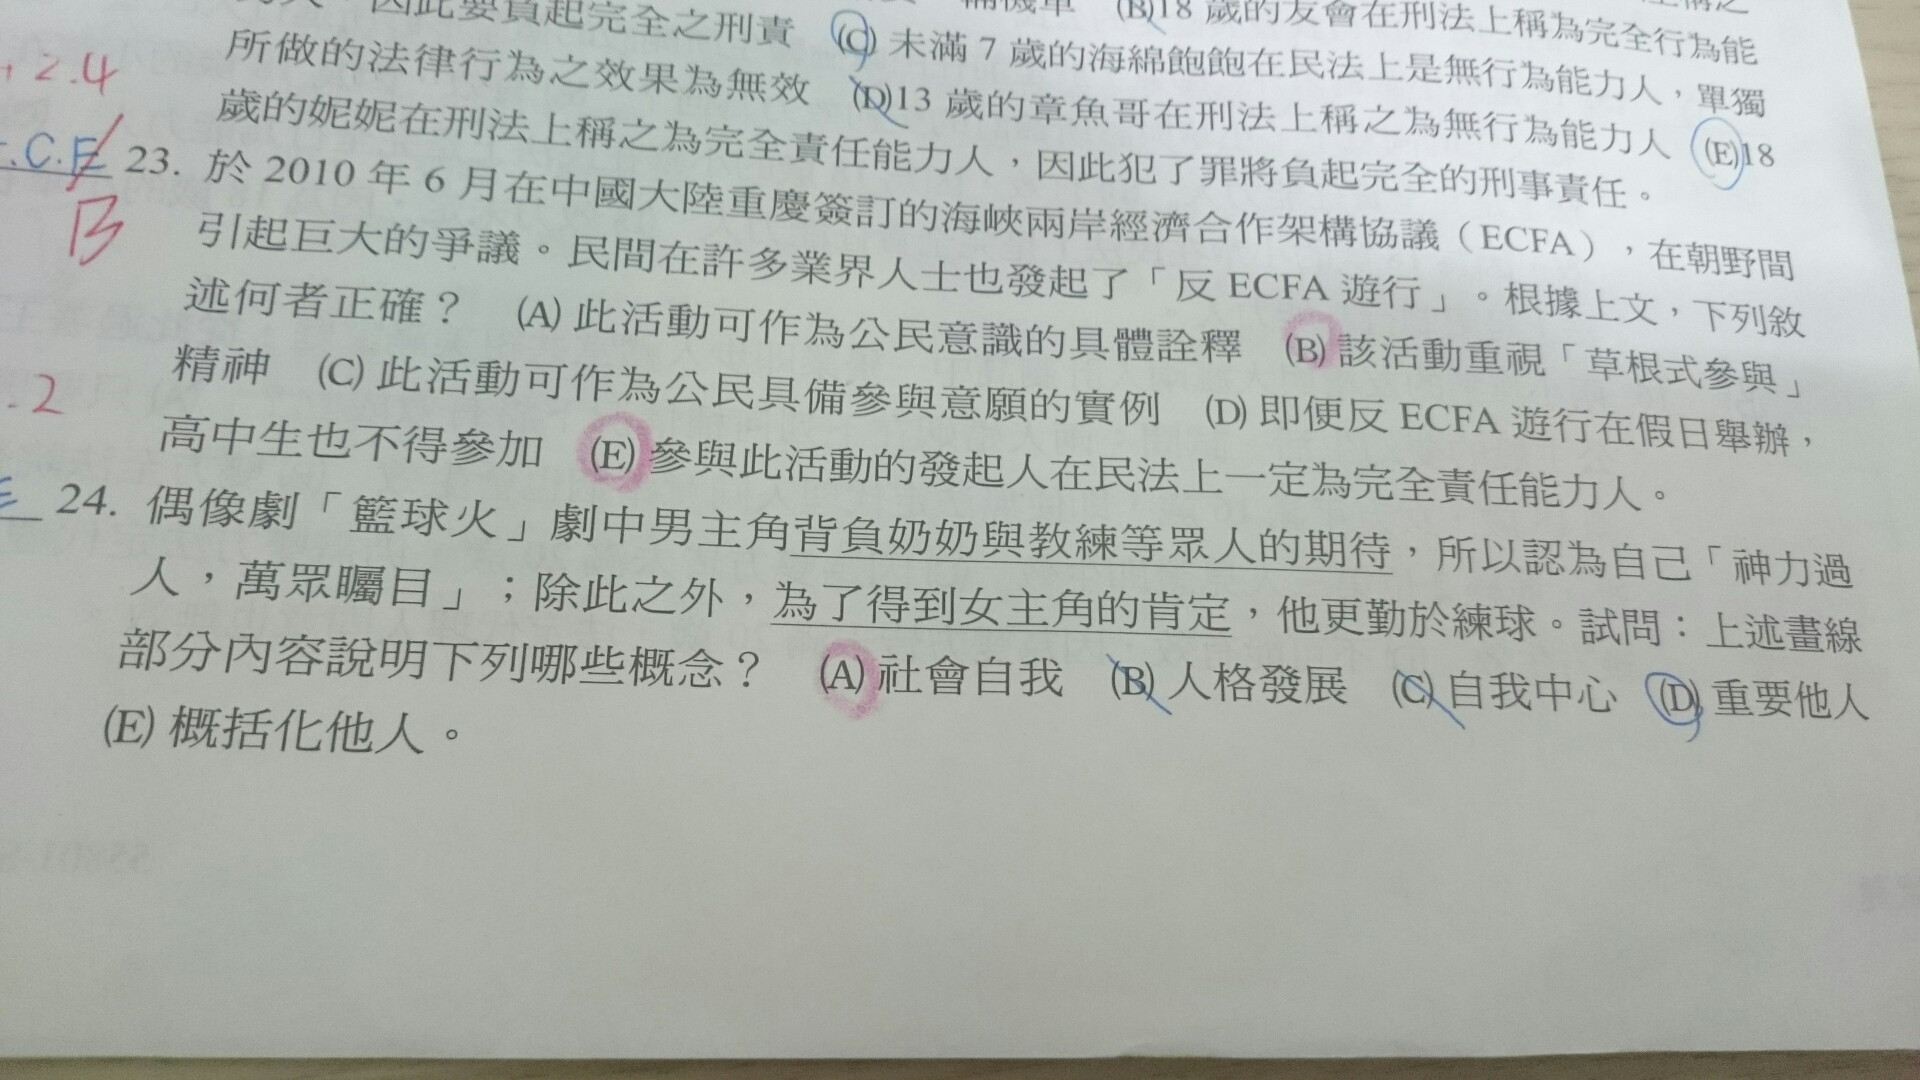 因此要負起完全之刑責 (B)18 歲的友會在刑法上稱為完全行為能
所做的法律行為之效果為無效 (C) 未滿 7 歲的海綿飽飽在民法上是無行為能力人，單獨
歲的妮妮在刑法上稱之為完全責任能力人，因此犯了罪將負起完全的刑事責任。 (D)13 歲的章魚哥在刑法上稱之為無行為能力人 (E)18
2.4
.C.E
B
23. 於 2010 年 6 月在中國大陸重慶簽訂的海峽兩岸經濟合作架構協議（ECFA），在朝野間
引起巨大的爭議。民間在許多業界人士也發起了「反 ECFA 遊行」。根據上文，下列敘
述何者正確？ (A) 此活動可作為公民意識的具體詮釋 (B) 該活動重視「草根式參與」
精神 (C) 此活動可作為公民具備參與意願的實例 (D) 即便反 ECFA 遊行在假日舉辦，
高中生也不得參加 (E) 參與此活動的發起人在民法上一定為完全責任能力人。
.2
E
24. 偶像劇「籃球火」劇中男主角背負奶奶與教練等眾人的期待，所以認為自己「神力過
人，萬眾矚目」；除此之外，為了得到女主角的肯定，他更勤於練球。試問：上述畫線
部分內容說明下列哪些概念？ (A) 社會自我 (B) 人格發展 (C) 自我中心 (D) 重要他人
(E) 概括化他人。